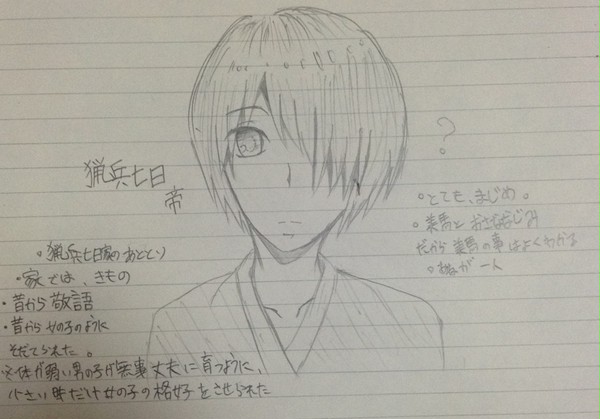 猟兵七日
帝
?
・猟兵七日家のおととい
・家では、きもの
・昔から敬語
・昔から女の子のように
そだてられた。
※体が弱い男の子が無事丈夫に育つように、
小さい時だけ女の子の格好をさせられた
・とても、まじめ。
・葉馬とおさななじみ
だから葉馬の事はよくわかる
が一人